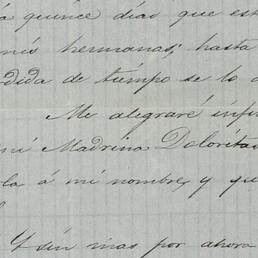 á quince días que est
mis hermanas; hasta
dida de tiempo se lo
Me alegraré infi
mi Madrina Dolorita
la á mi nombre, y que
Y sin mas por ahora